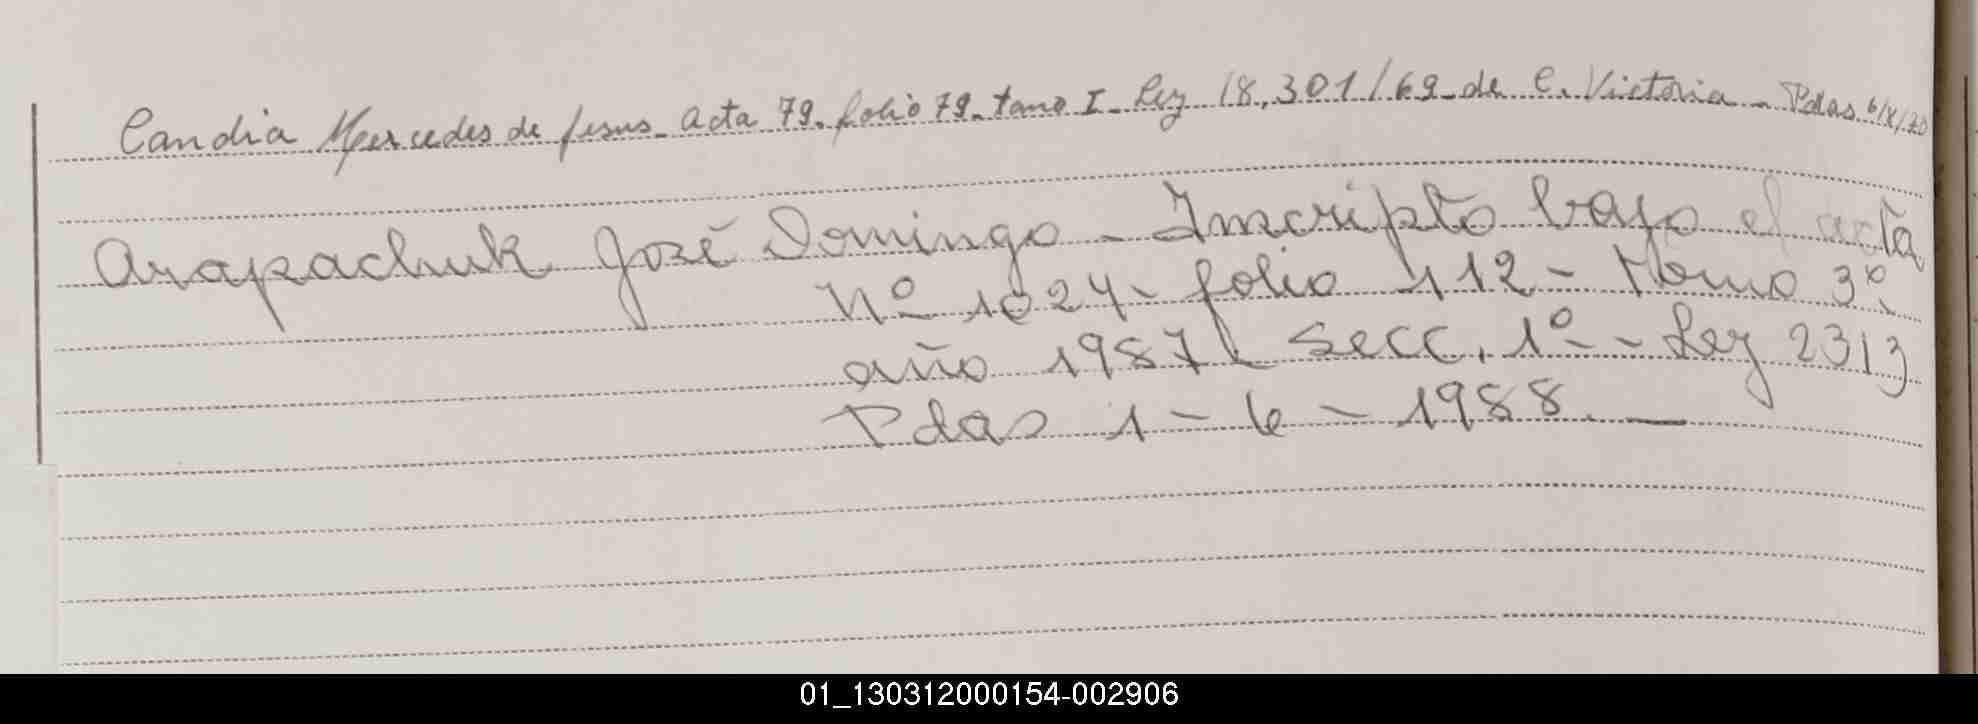 Candia Mercedes de Jesus - acta 79 - folio 79 - tomo I - Ley 18.301/69 - de C. Victoria - Pdas 6/X/70
Arapachuk José Domingo - Inscripto bajo el acta
Nº 1024 - folio 112 - tomo 3º
año 1987 - secc. 1º - Ley 2313
Pdas 1 - 6 - 1988. —
01_130312000154-002906